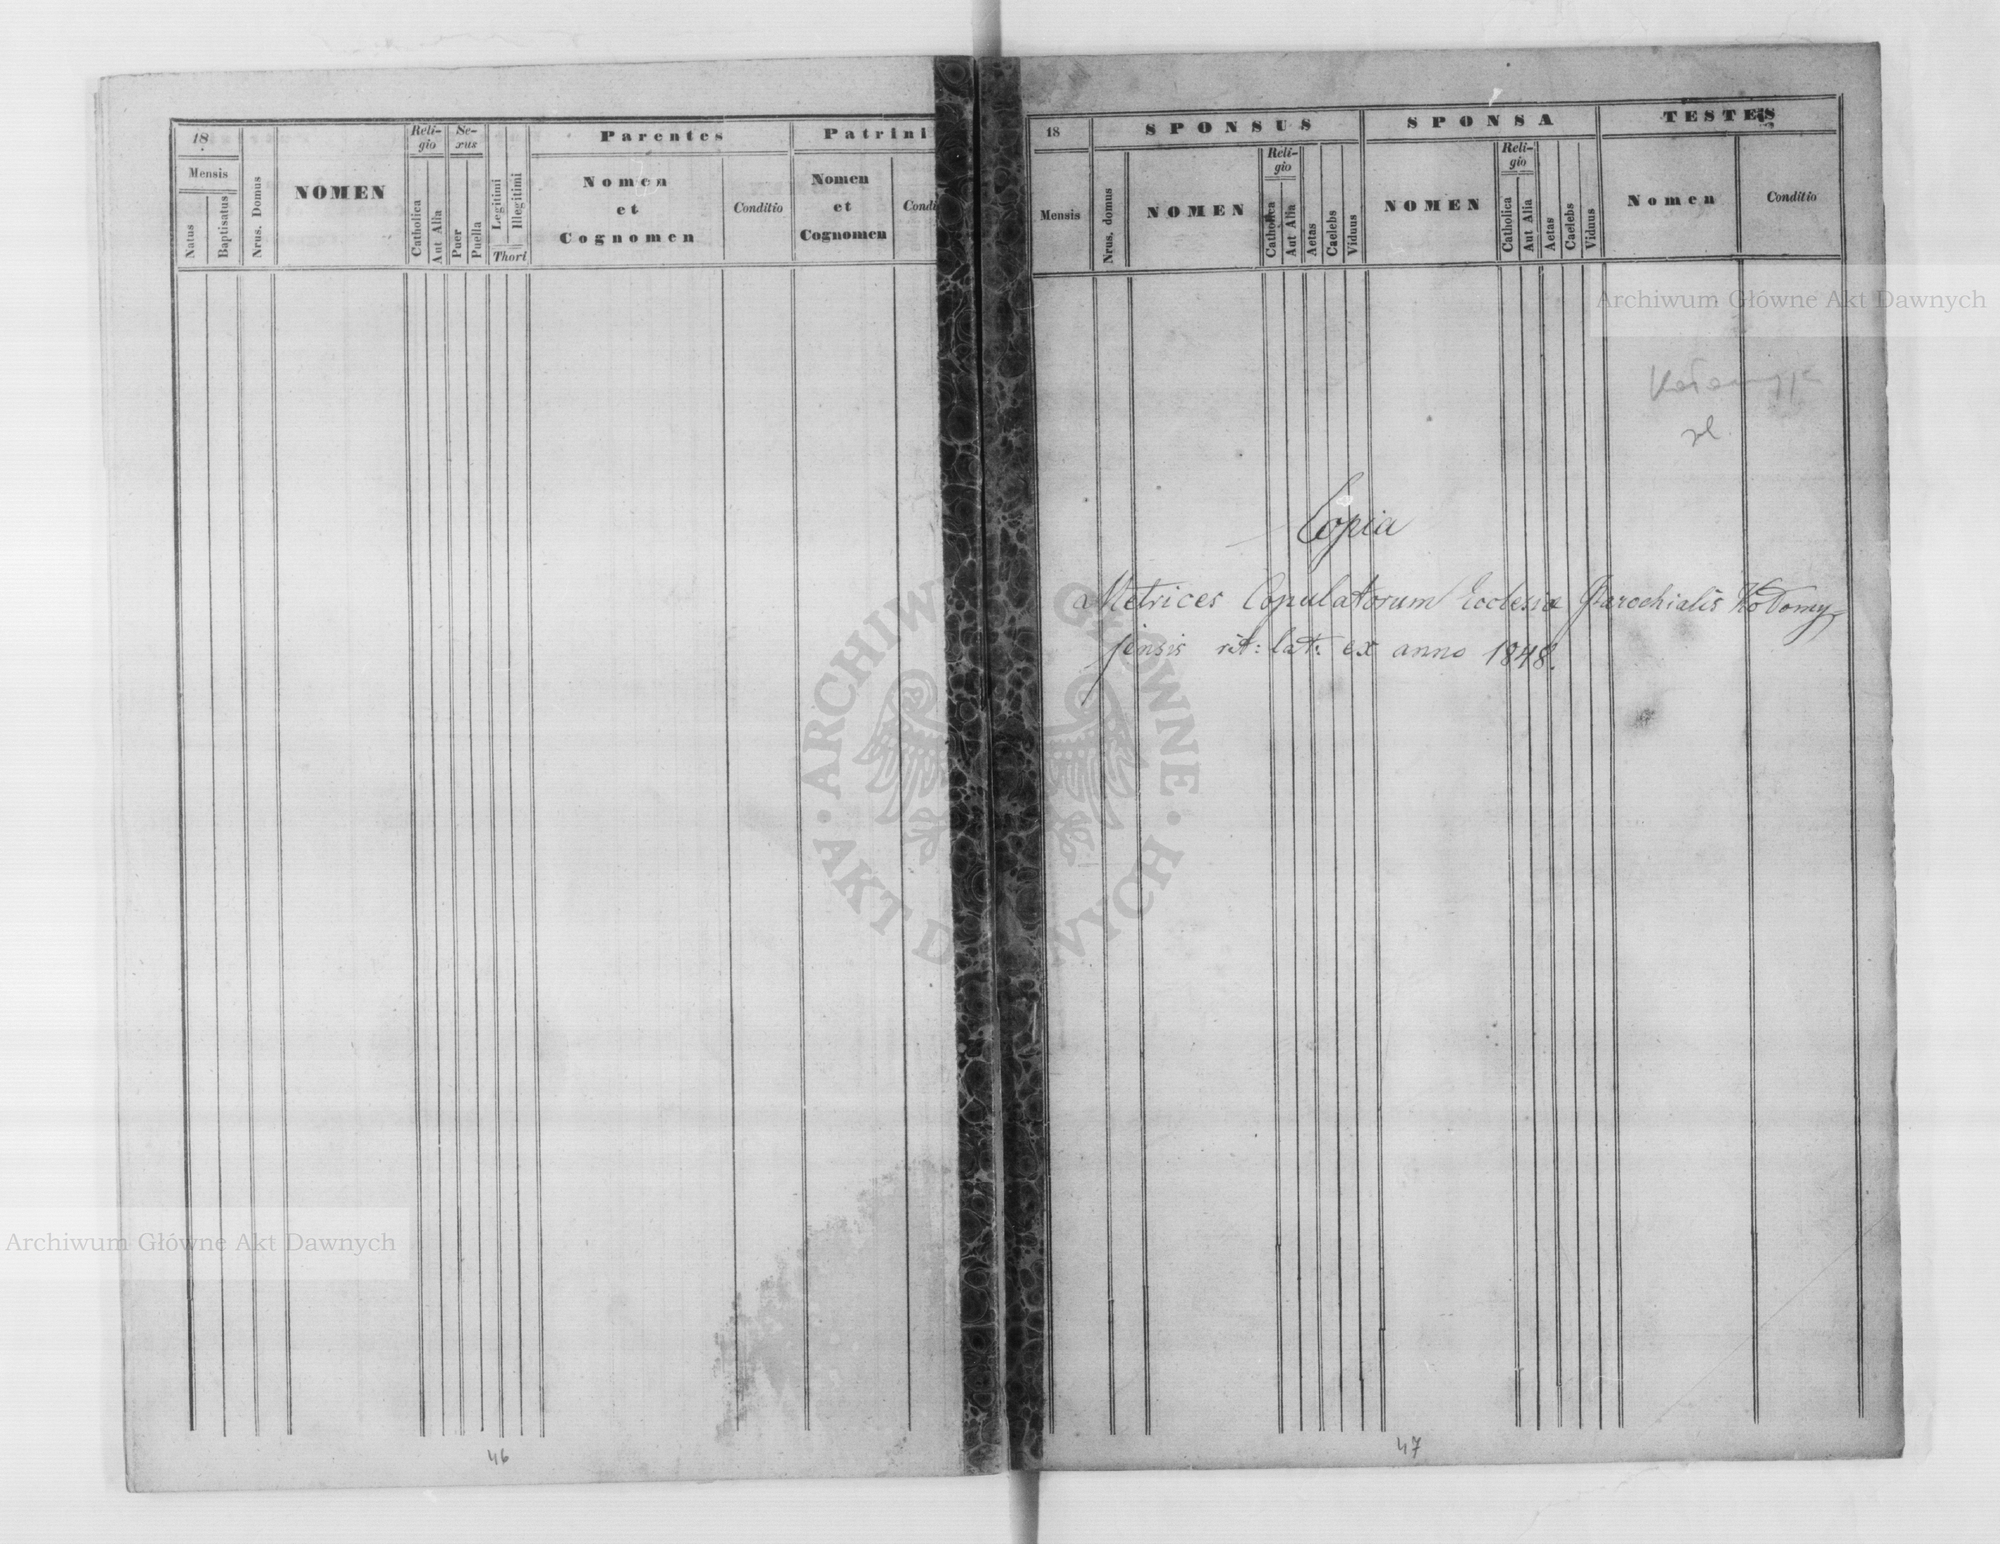 18
Mensis
Natus
Baptisatus
Nrus. Domus
NOMEN
Reli-
gio
Catholica
Aut Alia
Se-
xus
Puer
Puella
Legitimi
Illegitimi
Thori
Parentes
Nomen
et
Cognomen
Conditio
Patrini
Nomen
et
Cognomen
Condi
46
18
Mensis
SPONSUS
Nrus. domus
NOMEN
Reli-
gio
Catholica
Aut Alia
Aetas
Caelebs
Viduus
SPONSA
NOMEN
Reli-
gio
Catholica
Aut Alia
Aetas
Caelebs
Viduus
TESTES
Nomen
Conditio
Archiwum Główne Akt Dawnych
Copia
Metrices Copulatorum Ecclesia Parochialis Kołomy
jensis rit: lat: ex anno 1848.
47
ARCHIWUM GŁÓWNE
AKT DAWNYCH
Archiwum Główne Akt Dawnych